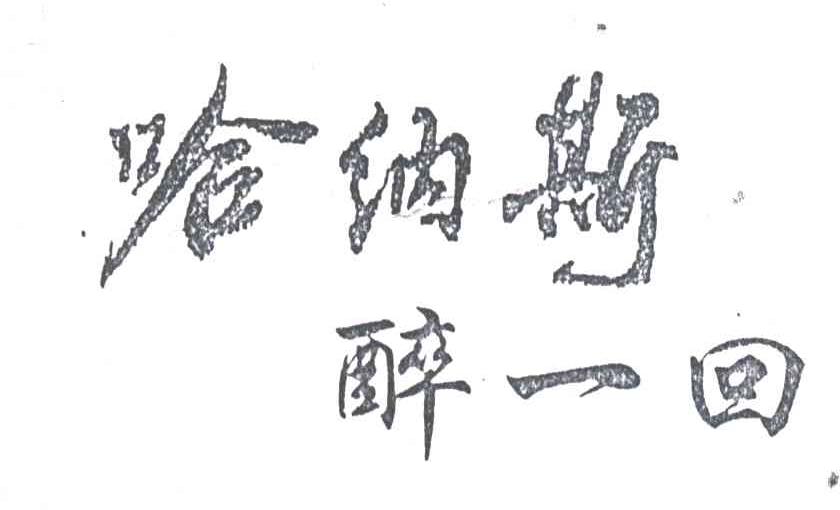 哈纳斯
醉一回